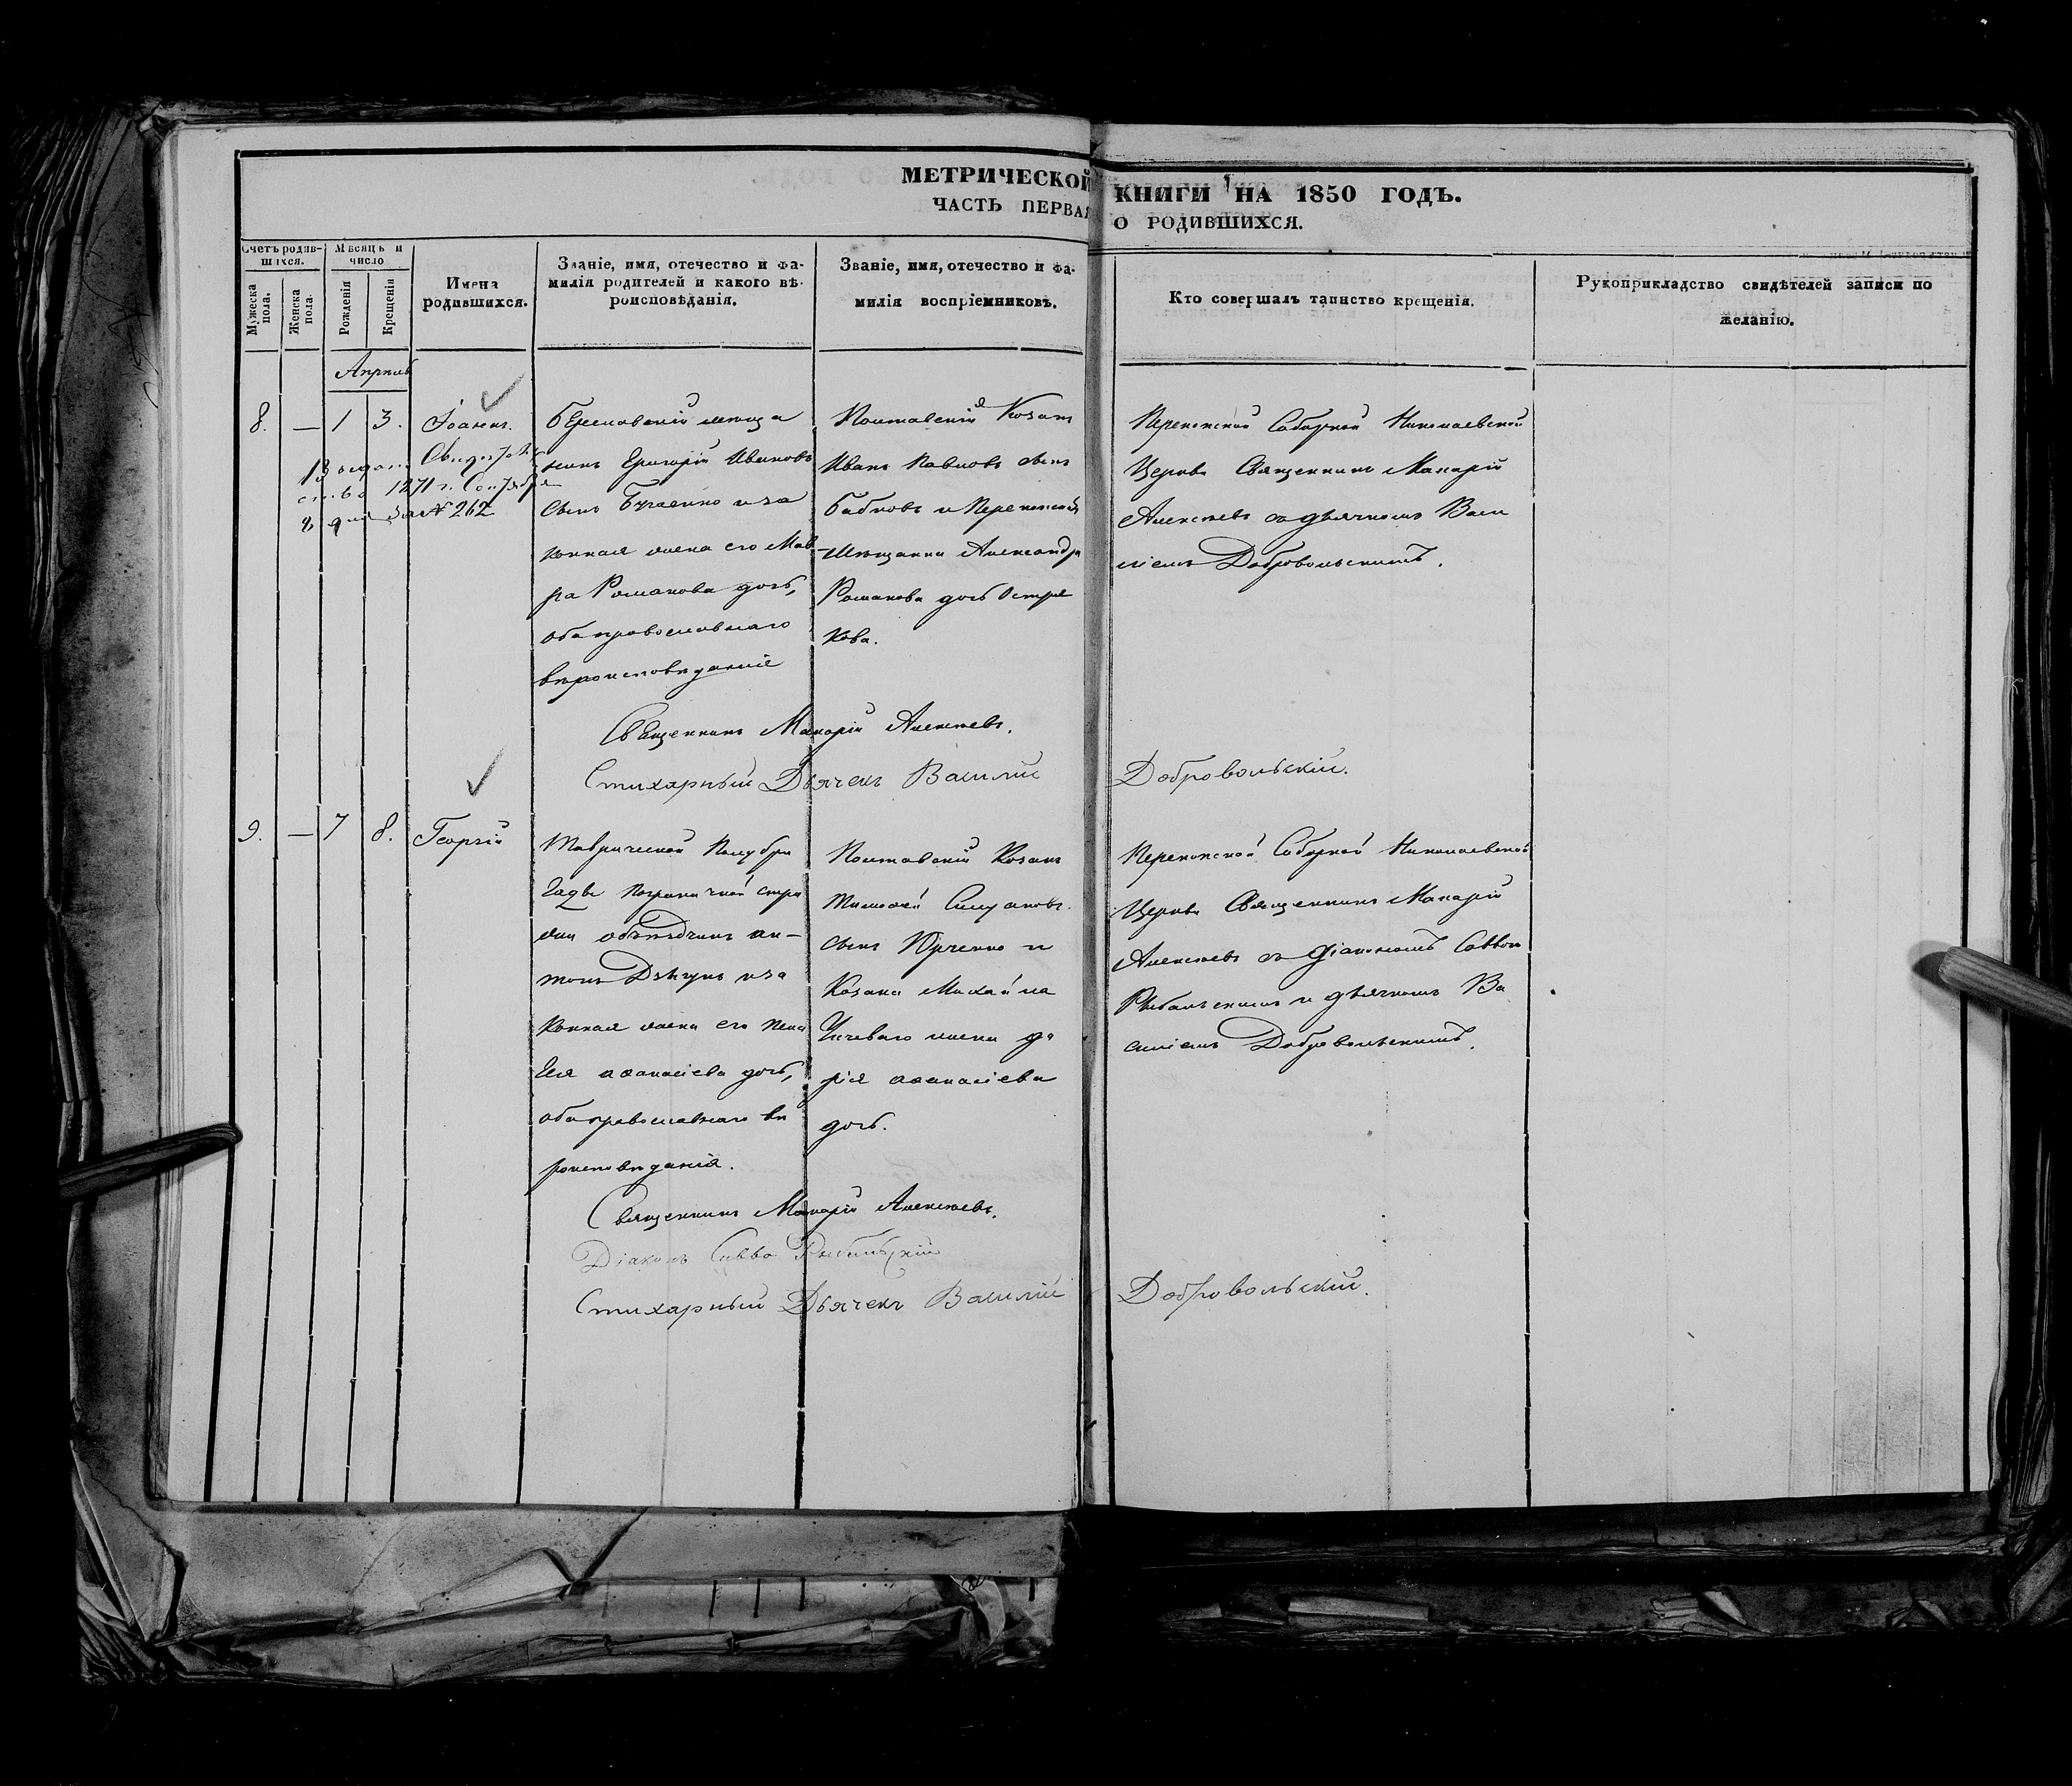 МЕТРИЧЕСКОЙ КНИГИ НА 1850 ГОДЪ.
ЧАСТЬ ПЕРВАЯ О РОДИВШИХСЯ.
Счетъ родившихся.
Мѣсяцъ и число
Мужеска пола.
Женска пола.
Рожденія
Крещенія
Имена родившихся.
Званіе, имя, отечество и фамилія родителей и какого вѣроисповѣданія.
Званіе, имя, отечество и фамилія воспріемниковъ.
Кто совершалъ таинство крещенія.
Рукоприкладство свидѣтелей записи по желанію.
Апрѣль
8. — 1 3. Іоаннъ.
Выдано Свидѣтель
ство 1871 г. Сентября
8 дня за № 262
нинъ Григорій Ивановъ
сынъ и за
конная жена его Мав
ра Романова дочь,
оба православнаго
вѣроисповѣданія
Полтавскій Козакъ
Иванъ Павловъ сынъ
Бабковъ и Перекопская
Мѣщанка Александра
Романова дочь Остре
кова.
Перекопской Соборной Николаевской
Церкви Священникъ Макарій
Алексѣевъ съ дьячкомъ Васи
ліемъ Добровольскимъ.
Священникъ Макарій Алексѣевъ.
Стихарный Дьячекъ Василій Добровольскій.
9. — 7 8. Георгій
Таврической Полубри
гады пограничной стра
жи объѣздчикъ Ан—
тонъ и за
конная жена его Пела
гея Аѳанасіева дочь,
оба православнаго вѣ
роисповѣданія.
Полтавскій Козакъ
Тимоѳей
сынъ Юрченко и
Козака Михаила
жена Да
рія Аѳанасіева
дочь.
Перекопской Соборной Николаевской
Церкви Священникъ Макарій
Алексѣевъ съ діакономъ Саввою
Рыбальскимъ и дьячкомъ Ва
силіемъ Добровольскимъ.
Священникъ Макарій Алексѣевъ.
Діаконъ Савва Рыбальскій
Стихарный Дьячекъ Василій Добровольскій.